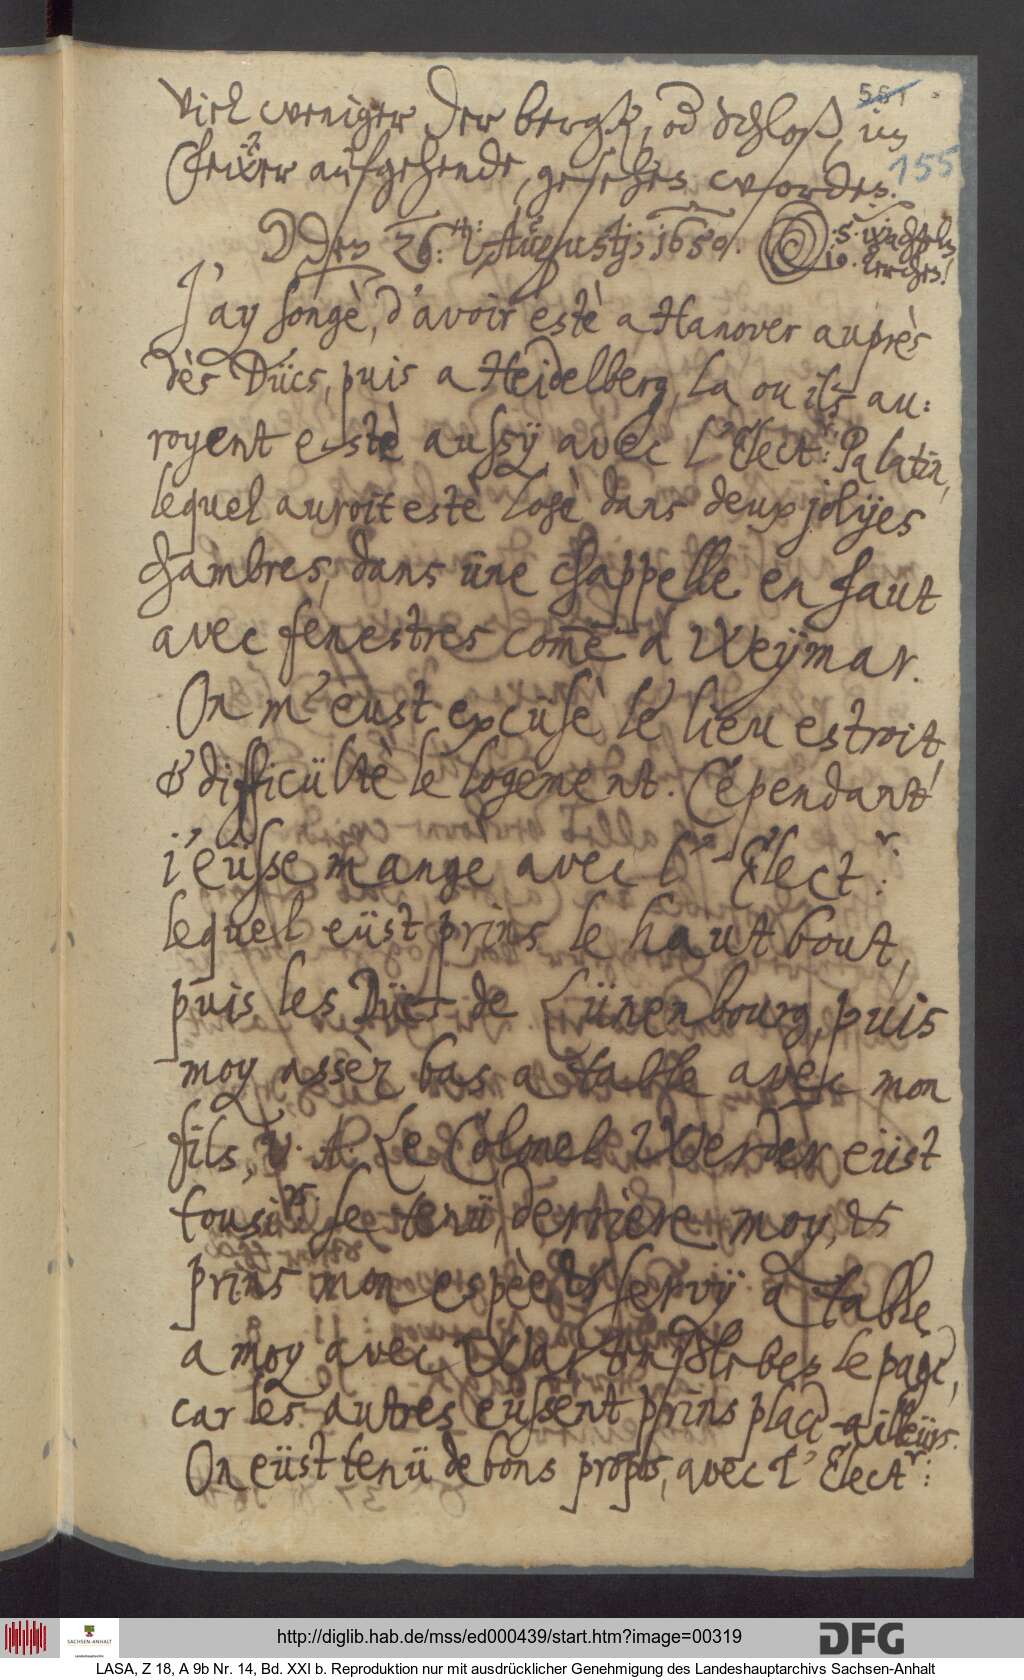 551
155
viel weniger der bergk, od schloß, im
fewer aufgehende, gesehen worden.
den 26: Augustj; 1650.
5. wachteln,
10. Lerchen!
J'ay songè, d'avoir estè a Hanover auprès
dès Dücs, puis a Heidelberg, la ou ils au:
royent estè aussÿ avec l'Elect.r: Palatin,
lequel auroit estè logè dans deux jolÿes
chambres, dans une chappelle en haut
avec fenestres come a Weÿmar.
On m'eust excüsè le lieu estroit,
& difficültè le logement. Cependant
i'eüsse mange avec l'Elect.r:
lequel eüst prins le haut bout,
puis les Dücs de Lünenbourg, puis
moy assèz bas a table avec mon
fils, V. A. Le Colonel Werder eüst
tousi.rs se tenü derrière moy, &
prins mon espèe, & servÿ a table
a moy avec le page,
car les autres eussent prins place ailleürs.
On eüst tenü de bons propos, avec l'Elect.r:
http://diglib.hab.de/mss/ed000439/start.htm?image=00319
SACHSEN-ANHALT
DFG
LASA, Z 18, A 9b Nr. 14, Bd. XXI b. Reproduktion nur mit ausdrücklicher Genehmigung des Landeshauptarchivs Sachsen-Anhalt